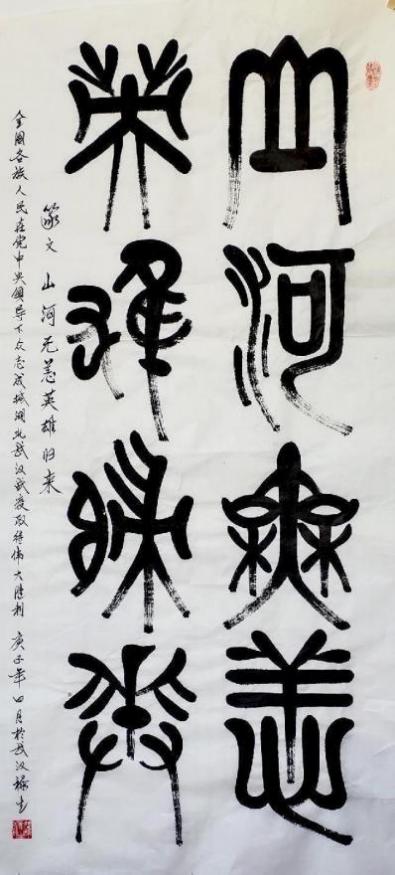 山河无恙
英雄归来
篆文 山河无恙英雄归来
全国各族人民在党中央领导下众志成城湖北武汉战疫取得伟大胜利 庚子年四月於武汉